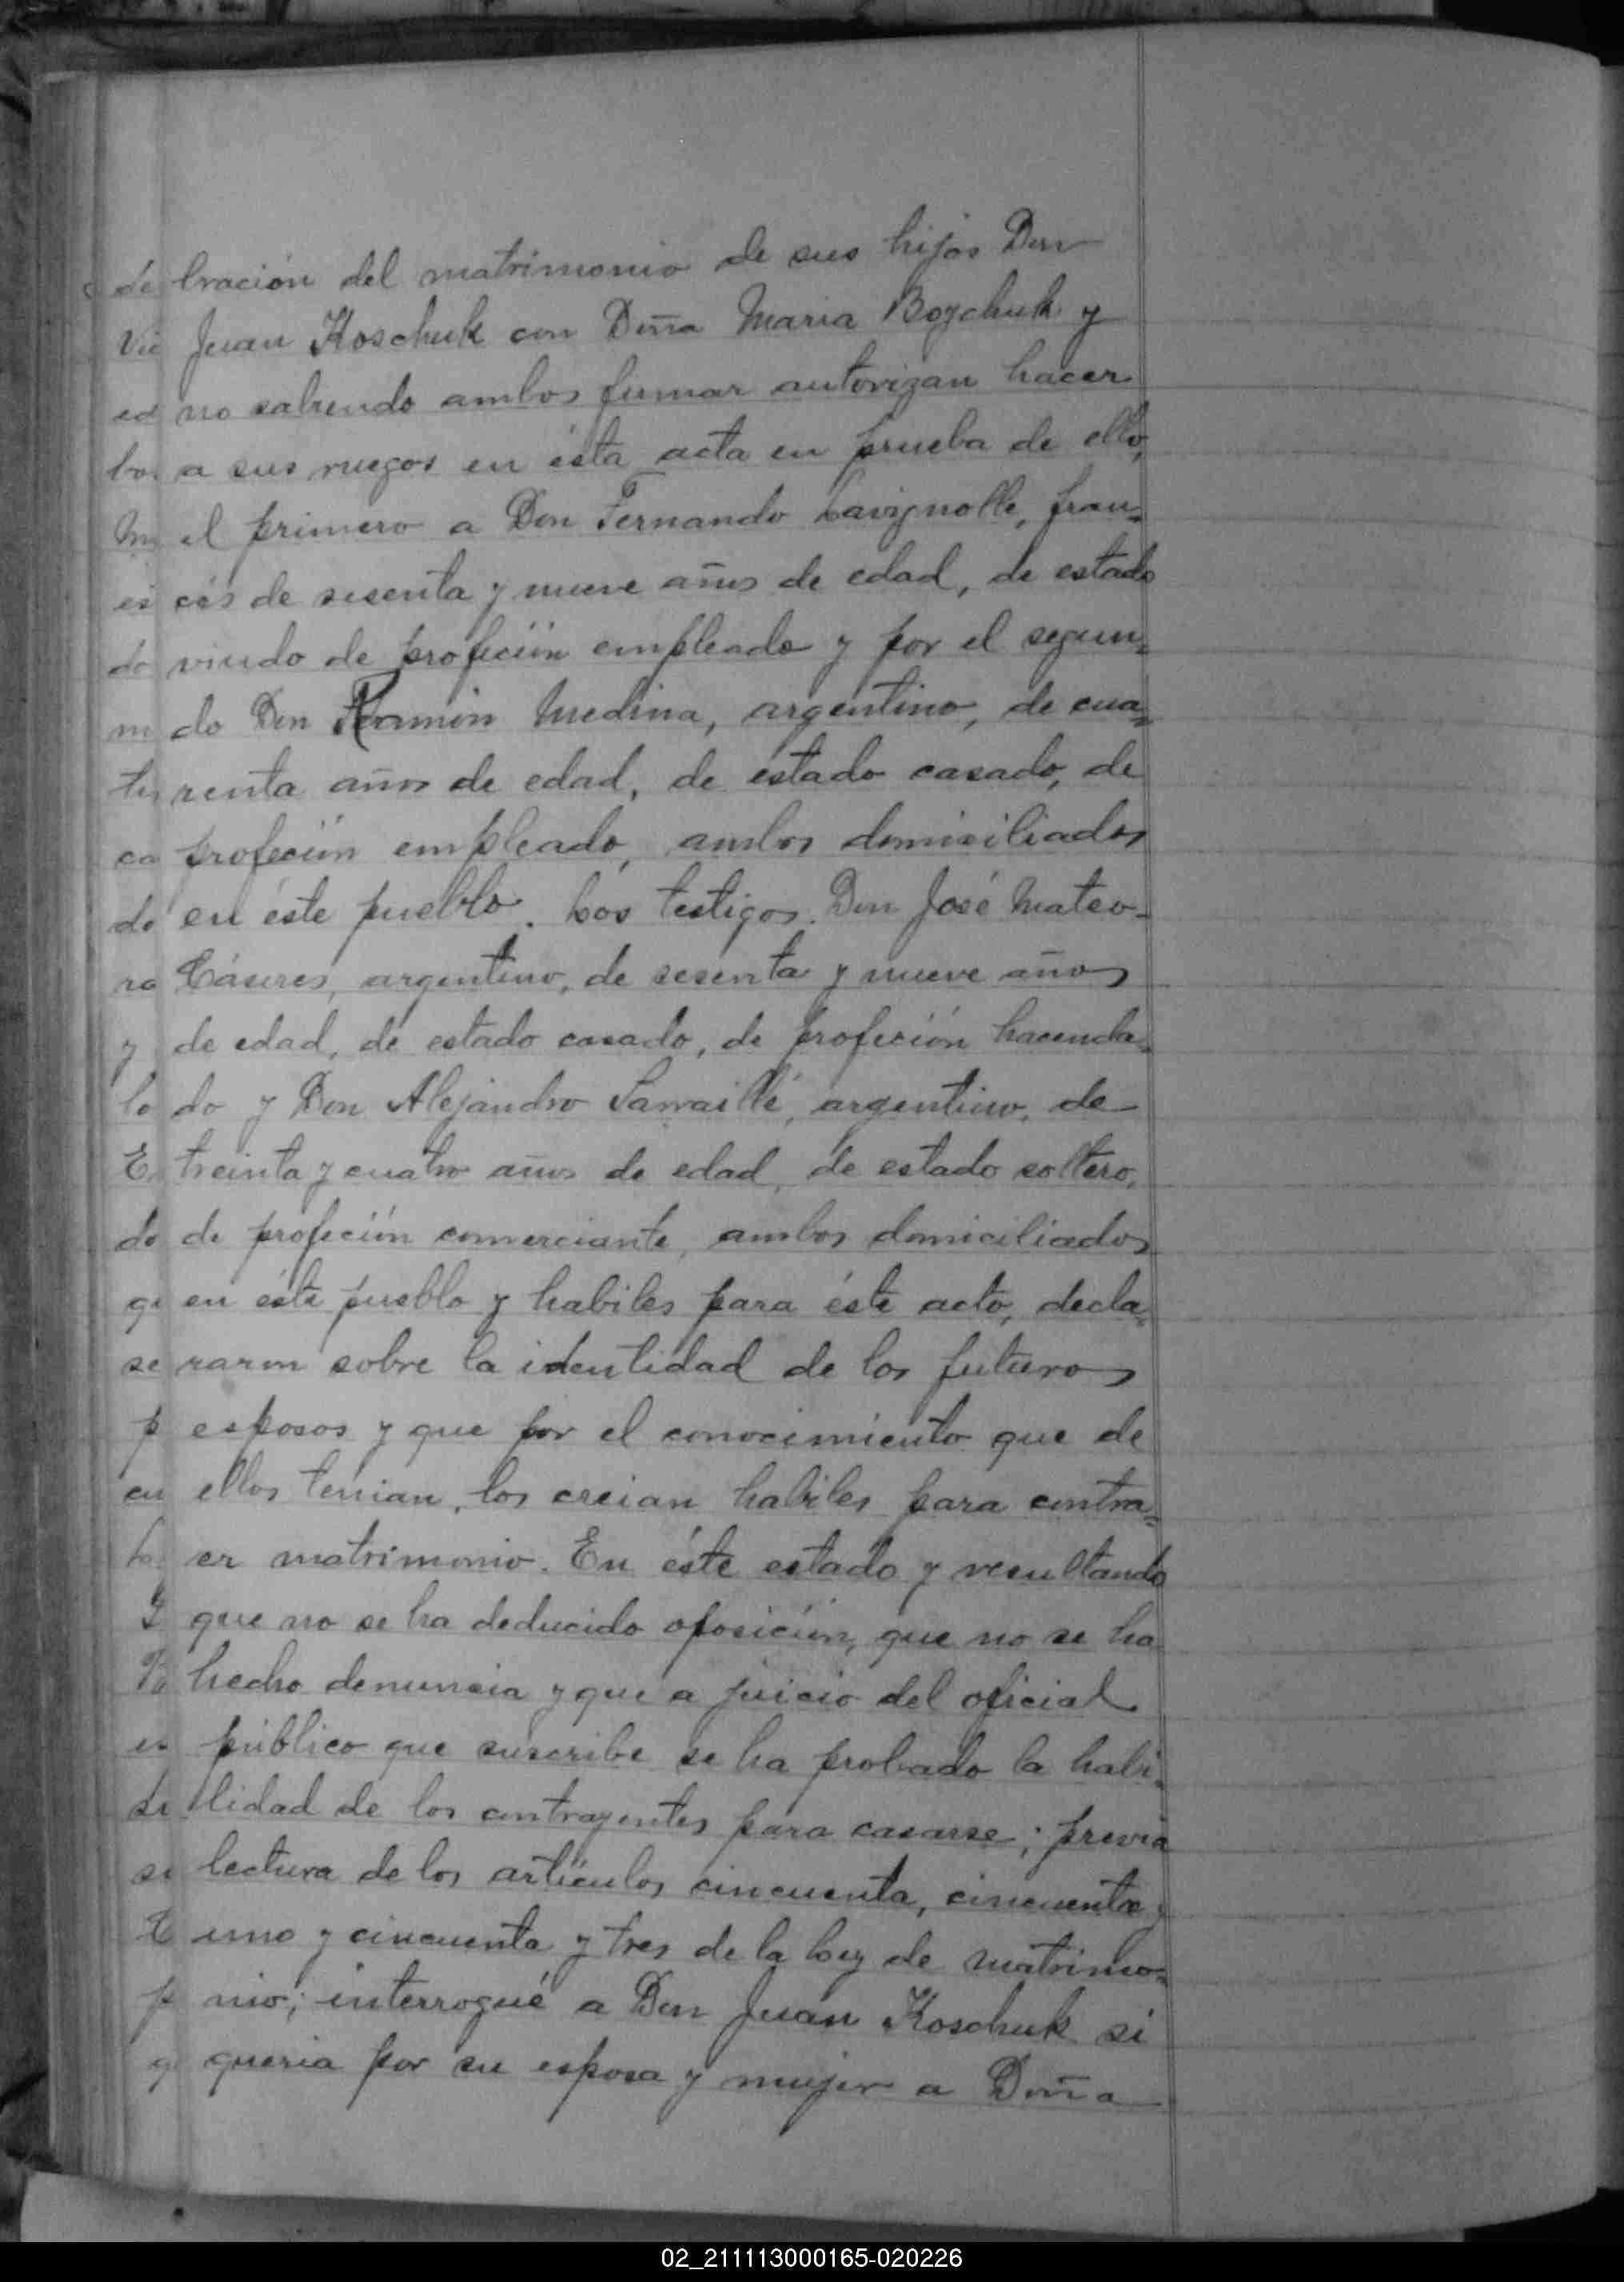 bración del matrimonio de sus hijos Don
Juan Koschuk con Doña Maria Boychuk y
no sabiendo ambos firmar autorizan hacer
a sus ruegos en ésta acta en prueba de ello,
el primero a Don Fernando Lavignolle, fran=
cés de sesenta y nueve años de edad, de estado
viudo de profeción empleado y por el segun=
do Don Ramón Medina, argentino, de cua=
renta años de edad, de estado casado, de
profeción empleado, ambos domiciliados
en éste pueblo. Los testigos. Don José Mateo
Cáseres, argentino, de sesenta y nueve años
de edad, de estado casado, de profeción hacenda=
do y Don Alejandro Sarraillé, argentino, de
treinta y cuatro años de edad, de estado soltero,
de profeción comerciante, ambos domiciliados
en éste pueblo y habiles para éste acto, decla=
raron sobre la identidad de los futuros
esposos y que por el conocimiento que de
ellos tenian, los creian habiles para contra=
er matrimonio. En éste estado y resultando
que no se ha deducido oposición, que no se ha
hecho denuncia y que a juicio del oficial
público que suscribe se ha probado la habi=
lidad de los contrayentes para casarse; previa
lectura de los artículos cincuenta, cincuenta y
uno y cincuenta y tres de la Ley de matrimo=
nio; interrogué a Don Juan Koschuk si
queria por su esposa y mujer a Doña
02_211113000165-020226